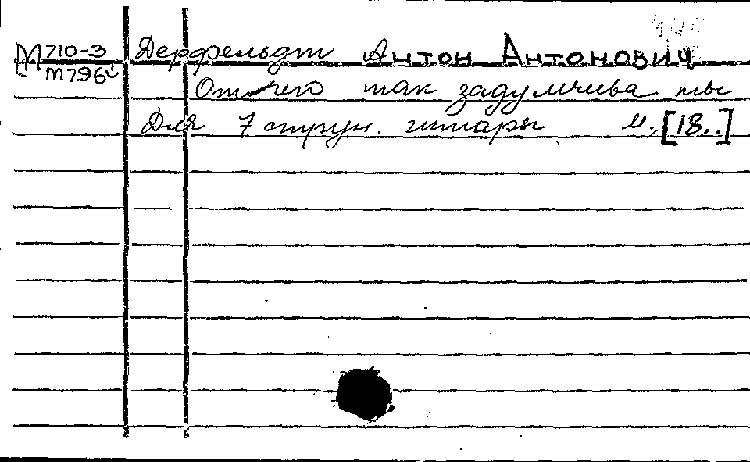 М 710-3 Дерфельдт Антон Антонович
m796
Отчего так задумчива ты
Для 7 струн. гитары М. [18..]